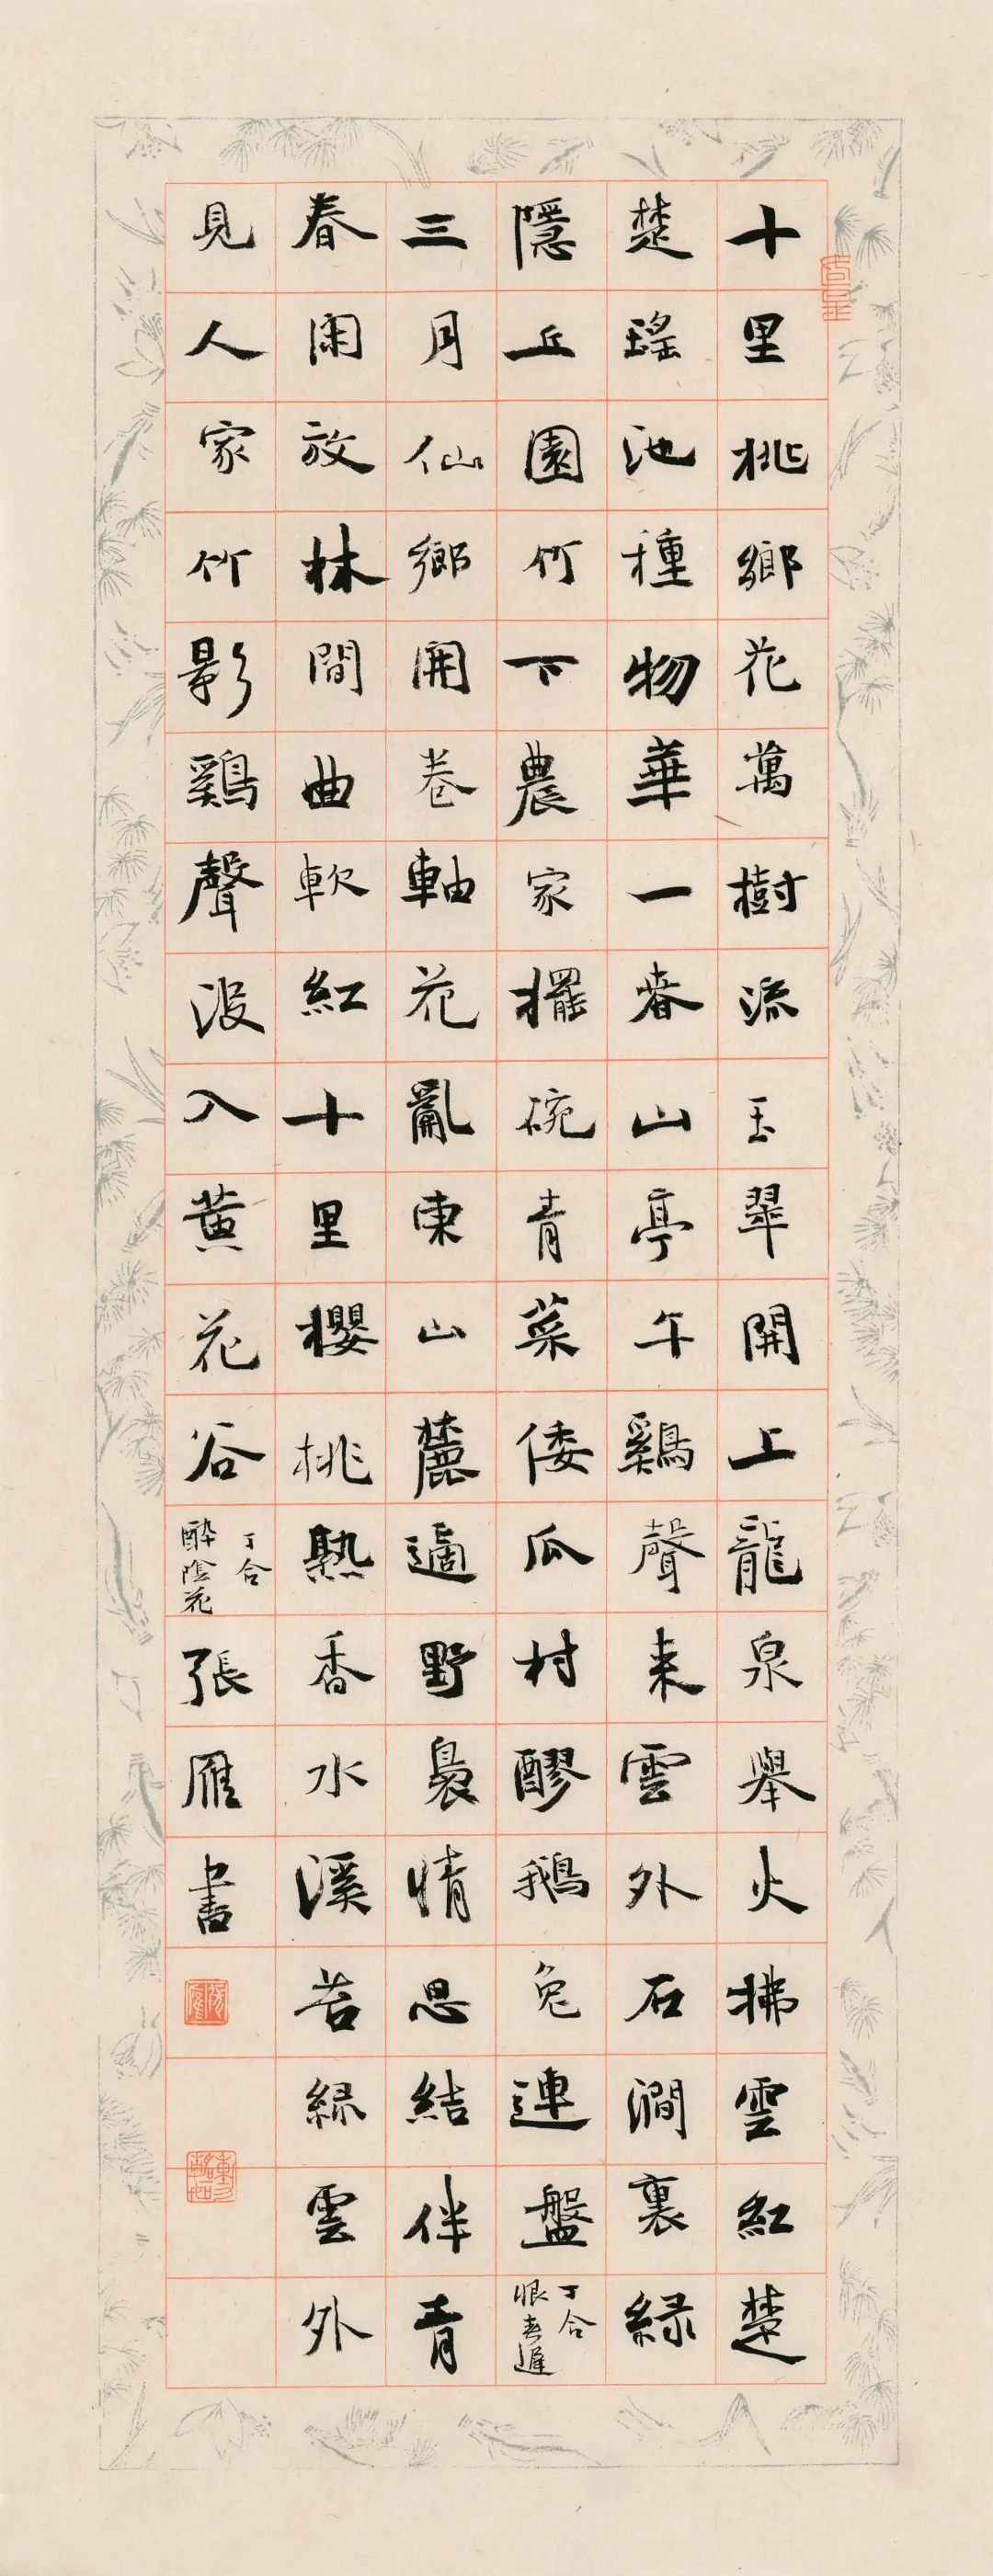 十里桃鄉花萬樹流玉翠開上龍泉舉火拂雲紅楚
楚瑤池種物華一春山亭午鷄聲来雲外石澗裏緑
隱丘園竹下農家擺碗青菜倭瓜村醪鵝兔連盤
丁合
恨春遲
三月仙鄉開卷軸花亂東山麓適野裊情思結伴青
春閑放林間曲軟紅十里櫻桃熟香水溪苔緑雲外
見人家竹影鷄聲没入黄花谷
丁合
醉陰花
張雁書